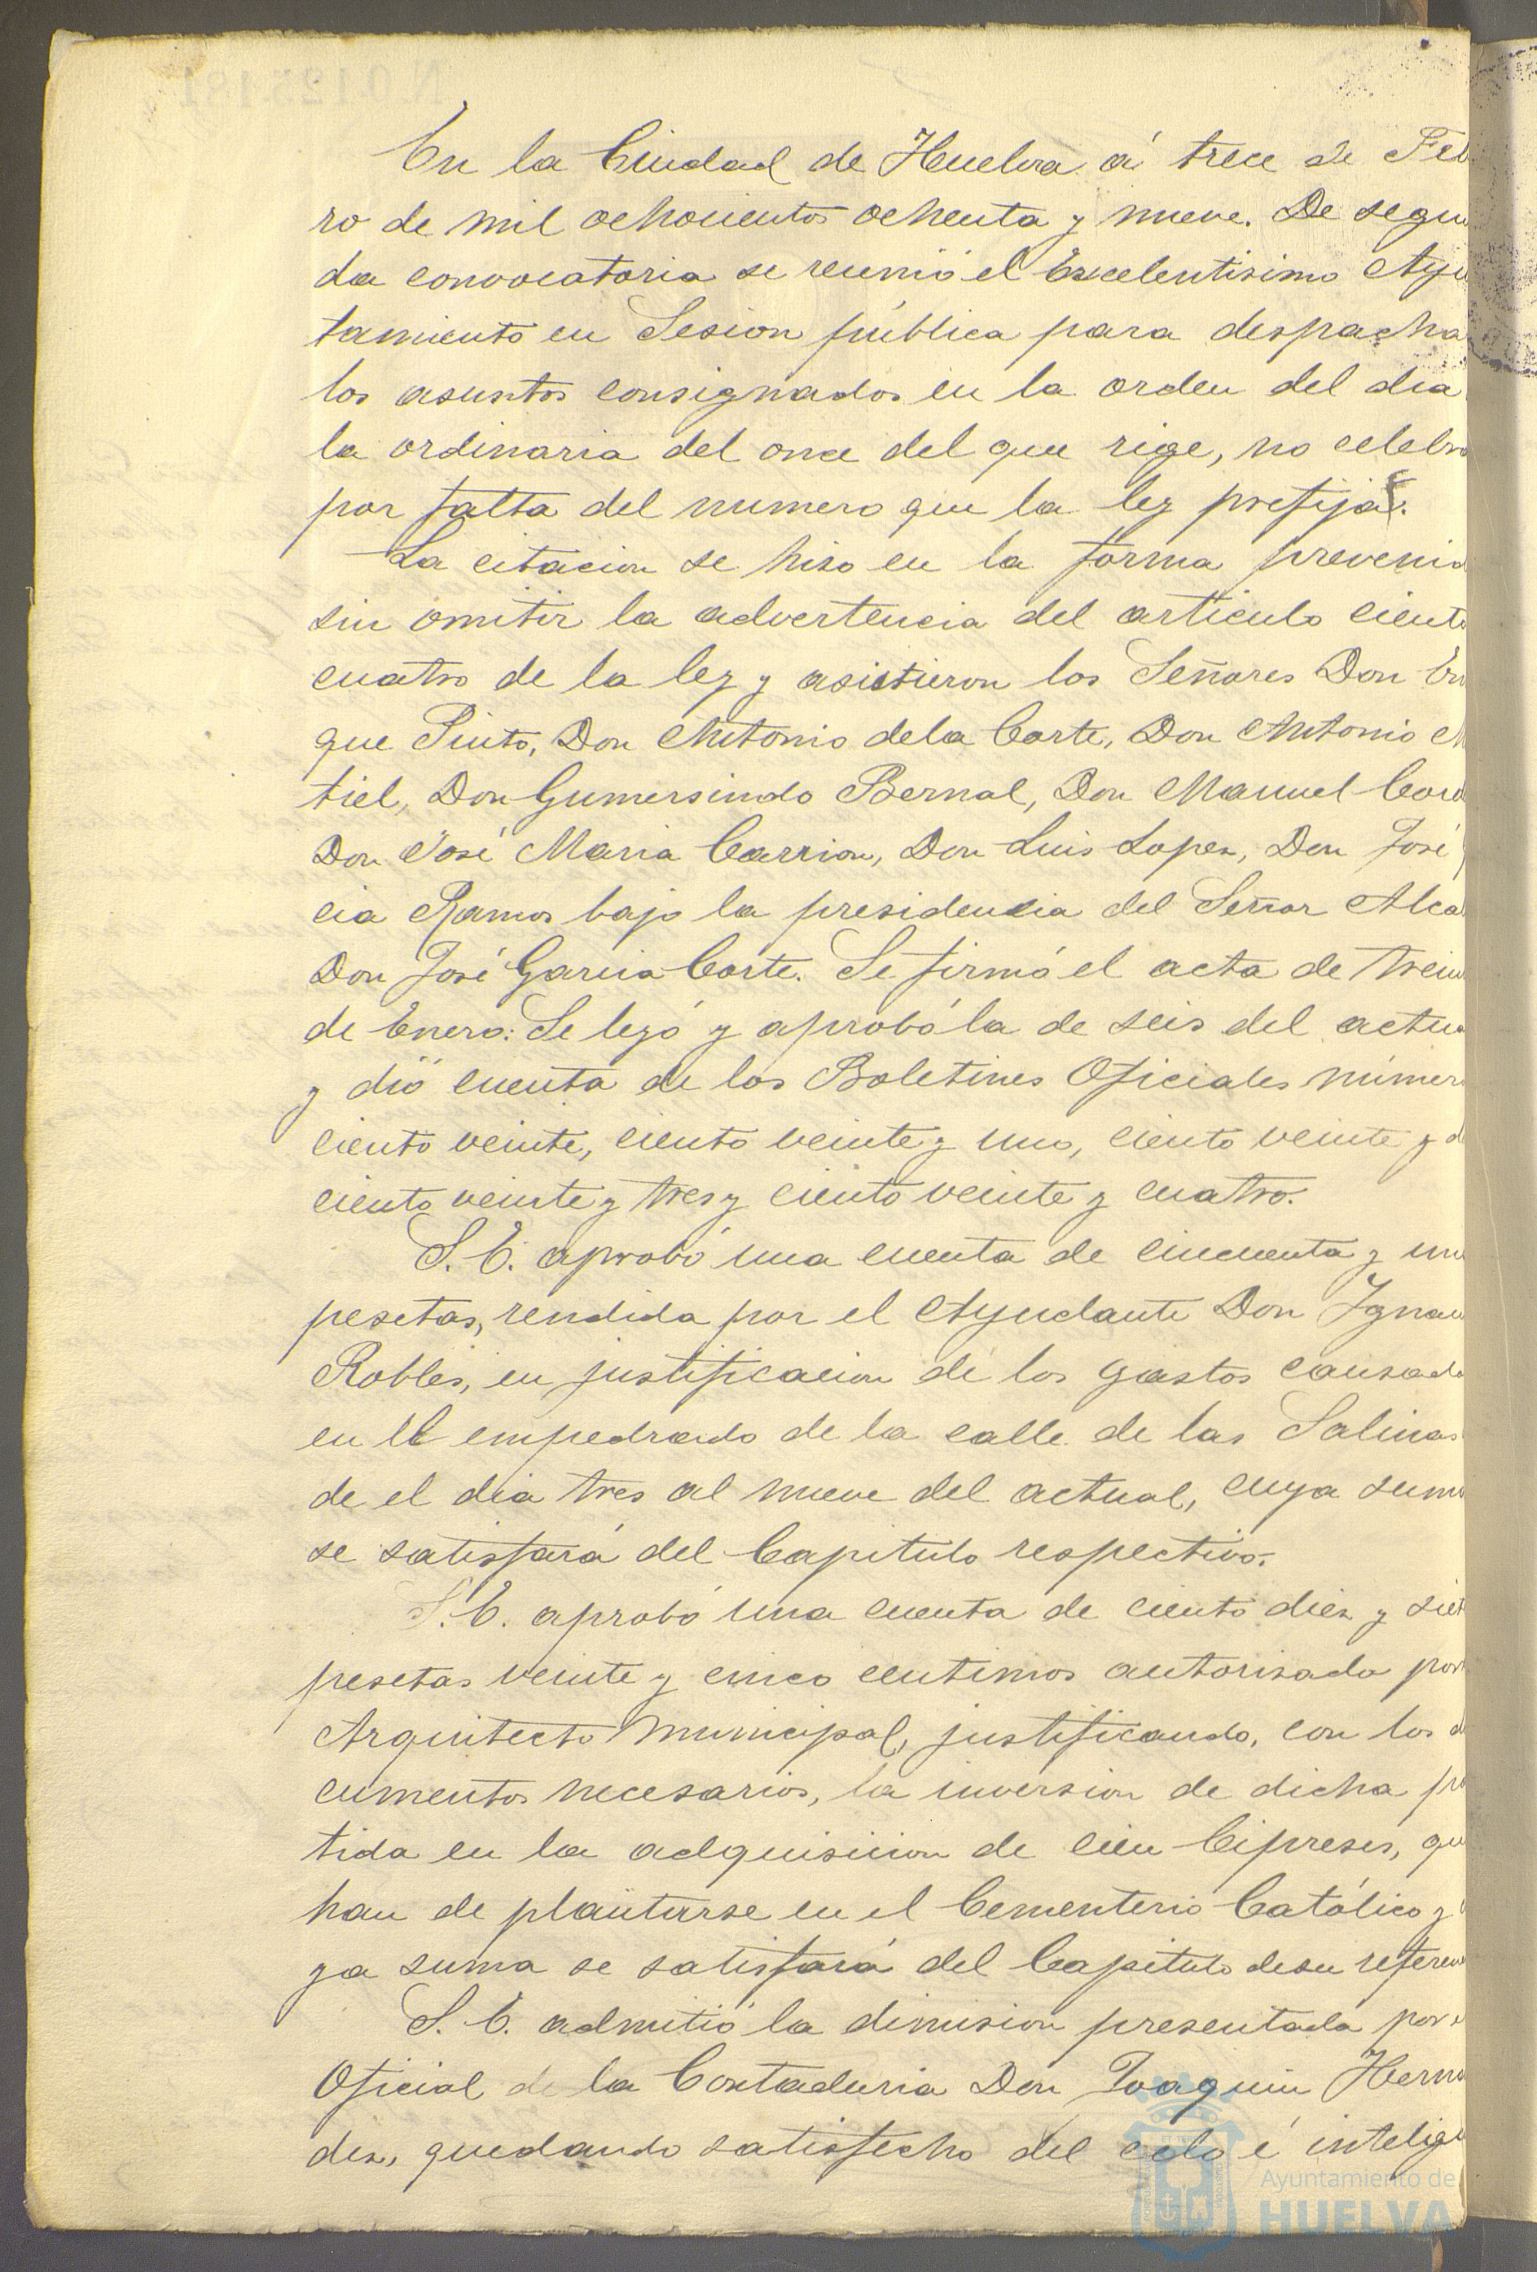 En la Ciudad de Huelva á trece de Feb
ro de mil ochocientos ochenta y nueve. De segun
da convocatoria se reunió el Excelentisimo Ayu
tamiento en Sesion pública para despacha
los asuntos consignados en la orden del dia
la ordinaria del once del que rige, no celebra
por falta del numero que la ley prefija.
La citacion se hiso en la forma prevenid
sin omitir la advertencia del articulo ciento
cuatro de la ley y asistieron los Señores Don En
que Pinto, Don Antonio dela Corte, Don Antonio M
tiel, Don Gumersindo Bernal, Don Manuel Cord
Don José Maria Carrion, Don Luis Lopez, Don José
cia Ramos bajo la presidencia del Señor Alcal
Don José Garcia Corte. Se firmó el acta de trein
de Enero: Se leyó y aprobó la de seis del actua
y dió cuenta de los Boletines Oficiales númer
ciento veinte, ciento veinte y uno, ciento veinte y d
ciento veinte y tres y ciento veinte y cuatro.
S. E. aprobó una cuenta de cincuenta y una
pesetas, rendida por el Ayudante Don Ignaci
Robles, en justificacion de los gastos causado
en el empedrado de la calle de las Salinas
de el dia tres al nueve del actual, cuya suma
se satisfará del Capitulo respectivo.
S. E. aprobó una cuenta de ciento diez y siet
pesetas veinte y cinco centimos autorisada por
Arquitecto Municipal, justificando, con los d
cumentos necesarios, la inversion de dicha pa
tida en la adquisicion de cien Cipreses, que
han de plantarse en el Cementerio Católico y
ya suma se satisfará del Capitulo desu referen
S. E. admitió la dimision presentada por e
Oficial de la Contaduria Don Joaquin Herna
dez, quedando satisfecho del celo é intelige
Ayuntamiento de
HUELVA